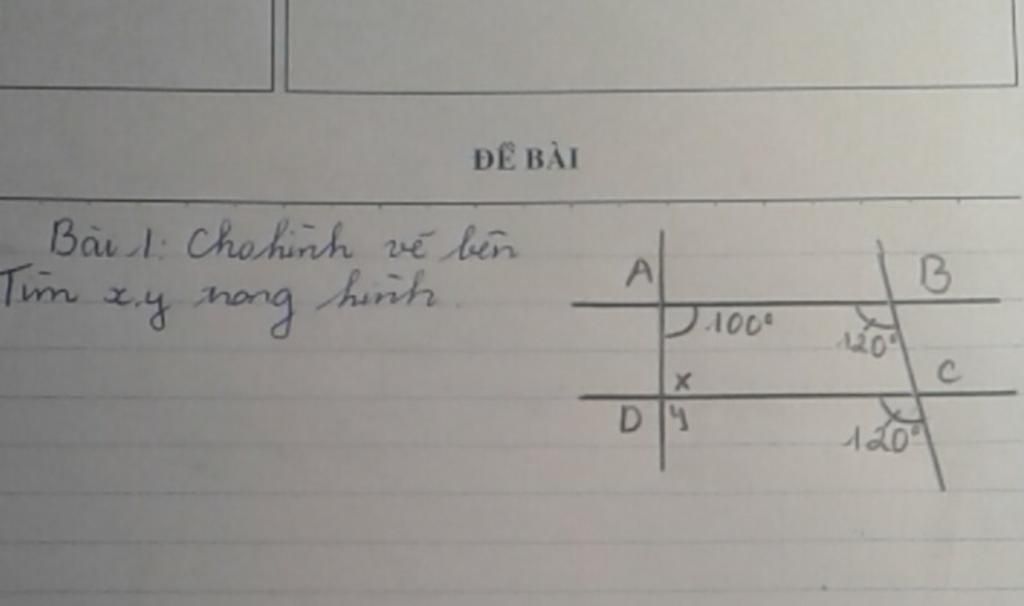 ĐỀ BÀI
Bài 1: Cho hình vẽ bên
Tìm x,y trong hình.
A
B
100°
120°
x
C
D
y
120°